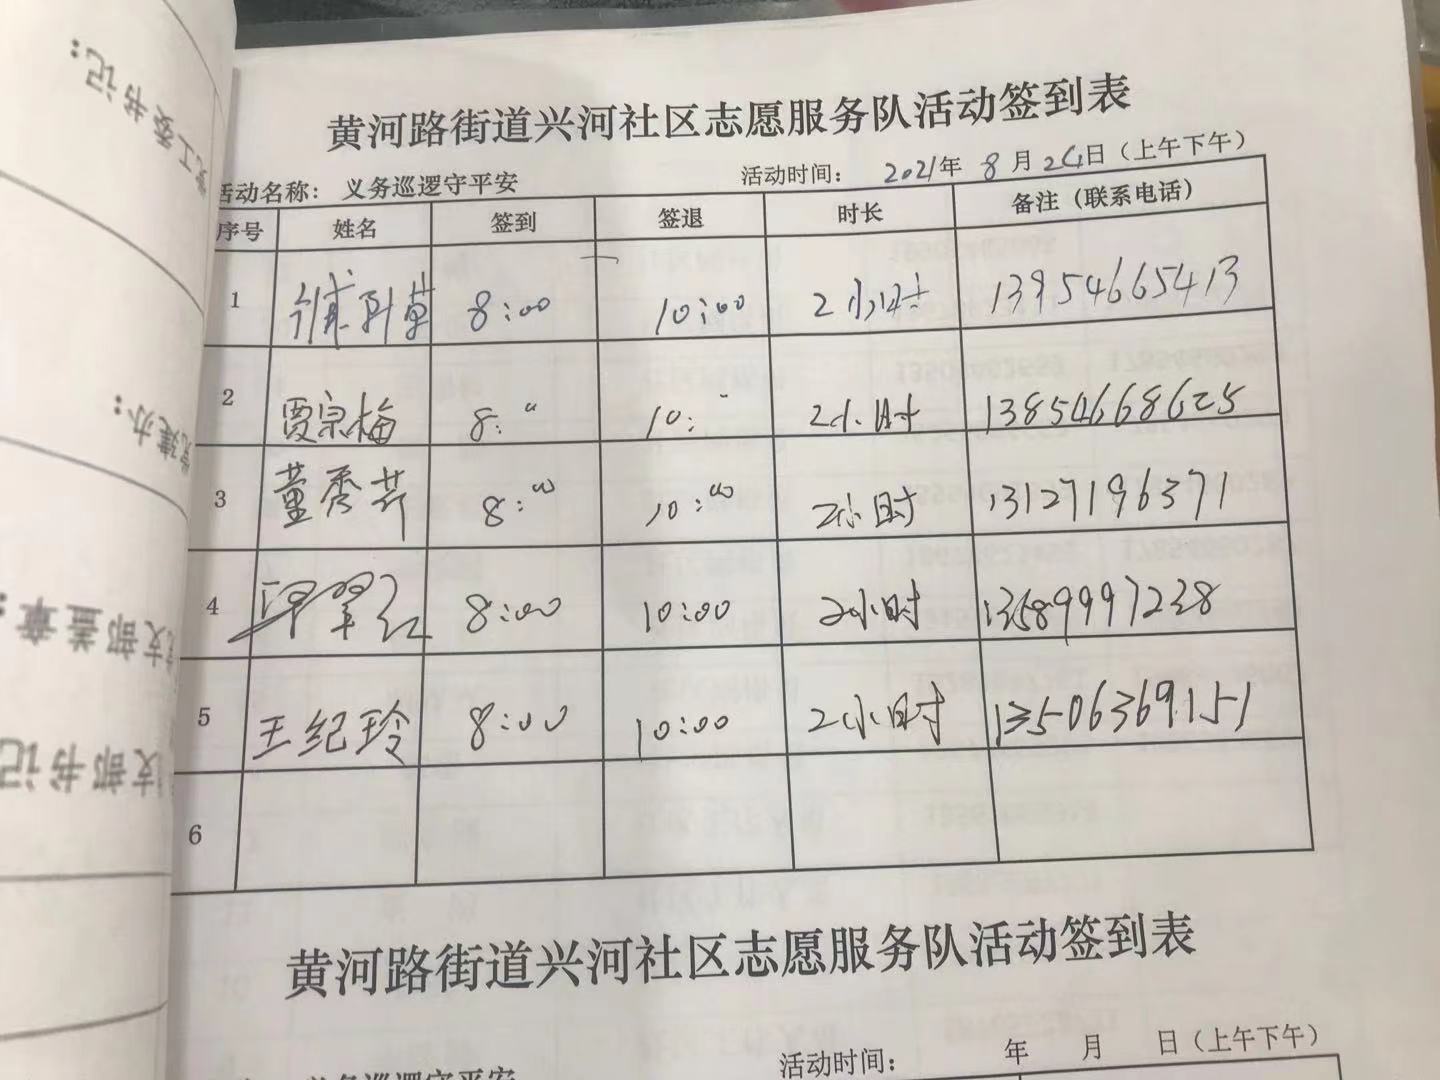 黄河路街道兴河社区志愿服务队活动签到表
活动名称： 义务巡逻守平安 活动时间： 2021年 8月24日（上午下午）
序号 姓名 签到 签退 时长 备注（联系电话）
1 8:00 10:00 2小时 13954665413
2 贾宗梅 8:〃 10:〃 2小时 13854668625
3 董秀芹 8:00 10:00 2小时 13127196371
4 8:00 10:00 2小时 13589997238
5 王纪玲 8:00 10:00 2小时 13506369151
6
黄河路街道兴河社区志愿服务队活动签到表
活动时间： 年 月 日（上午下午）
义务巡逻守平安
党工委书记：
党建办：
党支部盖章：
支部书记